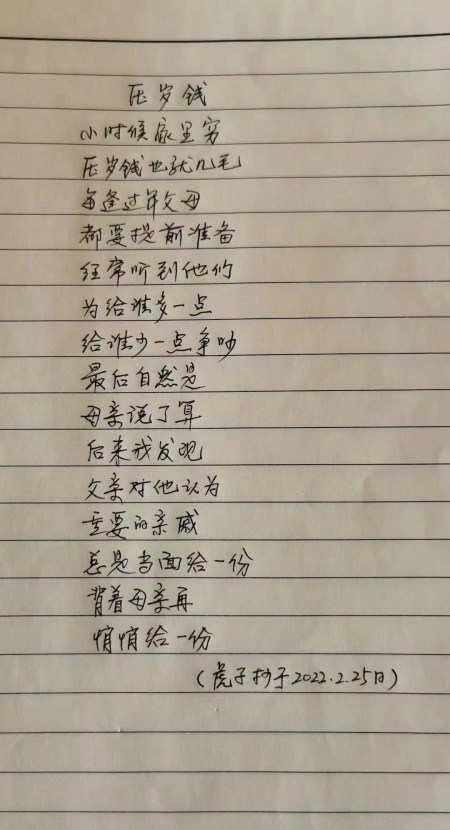 压岁钱
小时候家里穷
压岁钱也就几毛
每逢过年父母
都要提前准备
经常听到他们
为给谁多一点
给谁少一点争吵
最后自然是
母亲说了算
后来我发现
父亲对他认为
重要的亲戚
总是当面给一份
背着母亲再
悄悄给一份
(虎子抄于2022.2.25日)